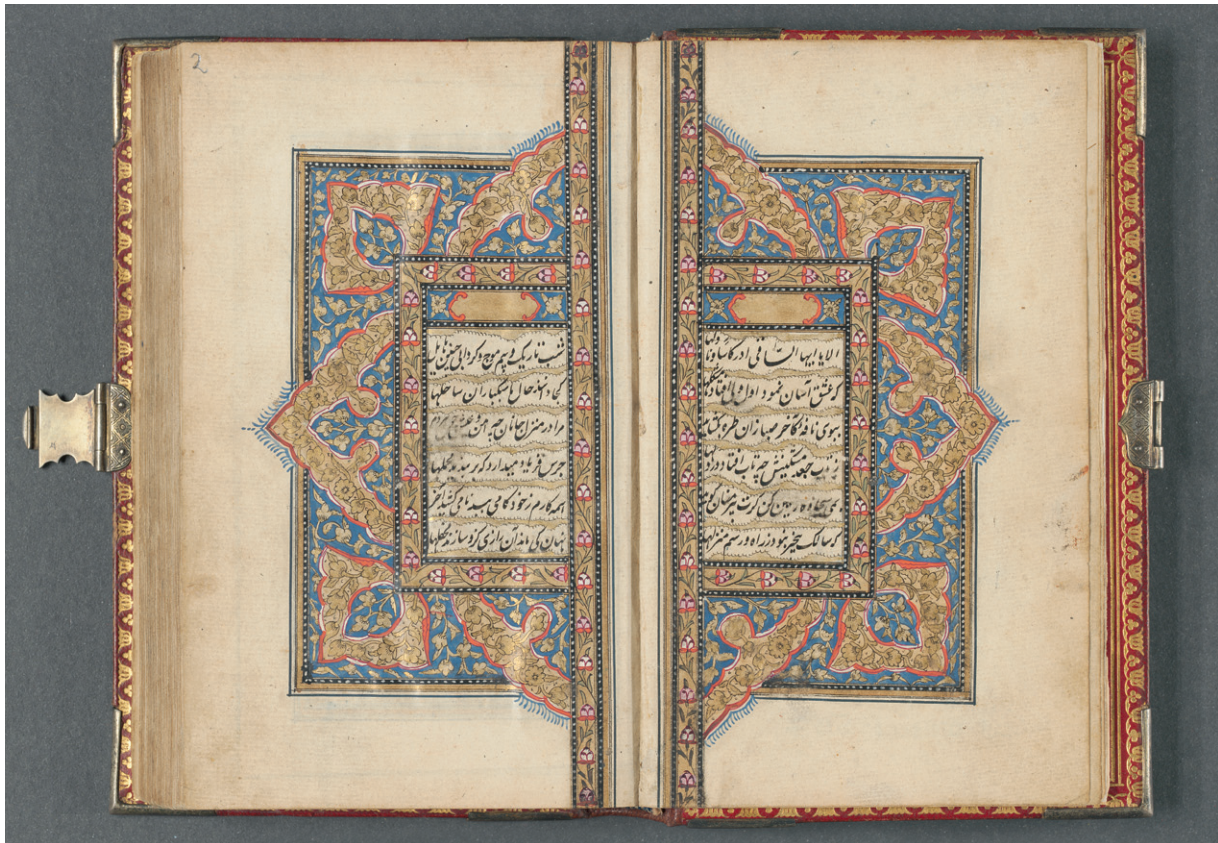 الا یا ایها الساقی ادر کاسا و ناولها
که عشق آسان نمود اول ولی افتاد مشکلها
ببوی نافه کاخر صبا زان طره بگشاید
ز تاب جعد مشکینش چه تاب افتاد در دلها
بمی سجاده رنگین کن گرت پیر مغان گوید
که سالک بیخبر نبود ز راه و رسم منزلها
2
شب تاریک و بیم موج و گردابی چنین هایل
کجا دانند حال ما سبکباران ساحلها
مرا در منزل جانان چه امن عیش
جرس فریاد میدارد که بربندید محملها
همه کارم ز خود کامی ببدنامی کشید آخر
نهان کی ماند آن رازی کزو سازند محفلها